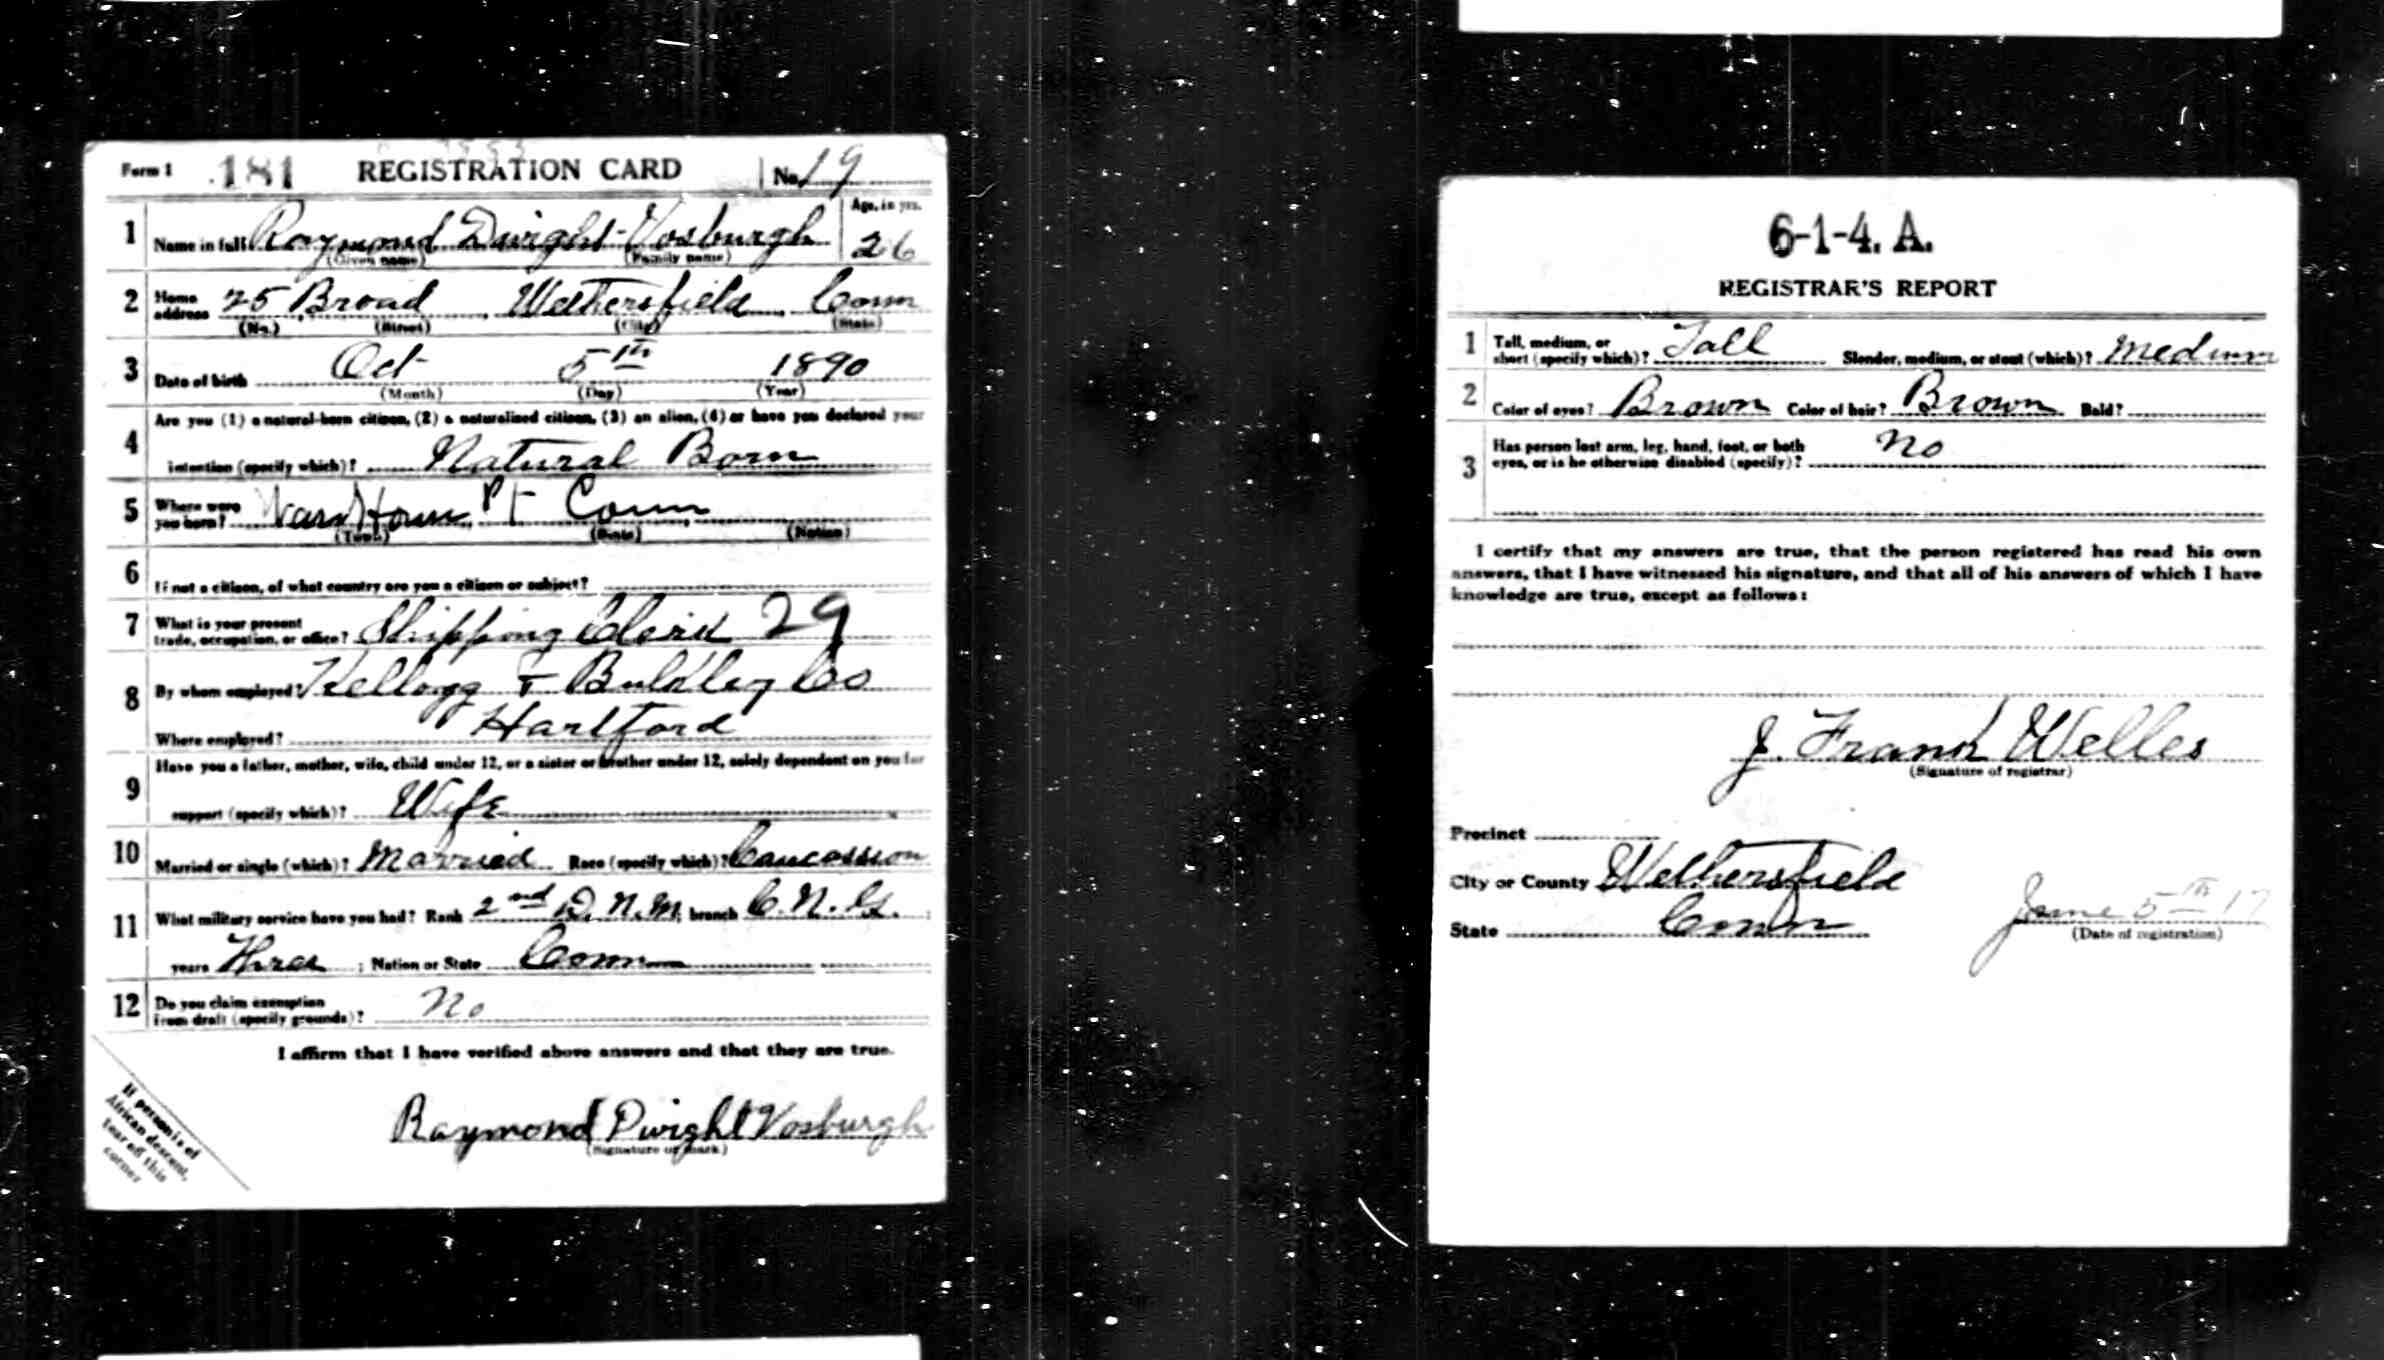 Form 1 181 REGISTRATION CARD No. 19
1 Name in full Raymond Dwight Vosburgh Age, in yrs. 26
(Given name) (Family name)
2 Home address 25 Broad Wethersfield Conn
(No.) (Street) (City) (State)
3 Date of birth Oct 5th 1890
(Month) (Day) (Year)
4 Are you (1) a natural-born citizen, (2) a naturalized citizen, (3) an alien, (4) or have you declared your
intention (specify which)? Natural Born
5 Where were you born? Pt Conn
(Town) (State) (Nation)
6 If not a citizen, of what country are you a citizen or subject?
7 What is your present trade, occupation, or office? Shipping Clerk 29
8 By whom employed? Kellogg & Bulkley Co
Where employed? Hartford
9 Have you a father, mother, wife, child under 12, or a sister or brother under 12, solely dependent on you for
support (specify which)? Wife
10 Married or single (which)? Married Race (specify which)? Caucassion
11 What military service have you had? Rank 2nd D. N. M. branch C. N. G. ;
years ; Nation or State Conn
12 Do you claim exemption from draft (specify grounds)? No
I affirm that I have verified above answers and that they are true.
Raymond Dwight Vosburgh
(Signature or mark)
If person is of
African descent,
tear off this
corner
6-1-4. A.
REGISTRAR'S REPORT
1 Tall, medium, or short (specify which)? Tall Slender, medium, or stout (which)? Medium
2 Color of eyes? Brown Color of hair? Brown Bald?
3 Has person lost arm, leg, hand, foot, or both eyes, or is he otherwise disabled (specify)? No
I certify that my answers are true, that the person registered has read his own
answers, that I have witnessed his signature, and that all of his answers of which I have
knowledge are true, except as follows:
J. Frank Welles
(Signature of registrar)
Precinct
City or County Wethersfield
State Conn June 5th 17
(Date of registration)